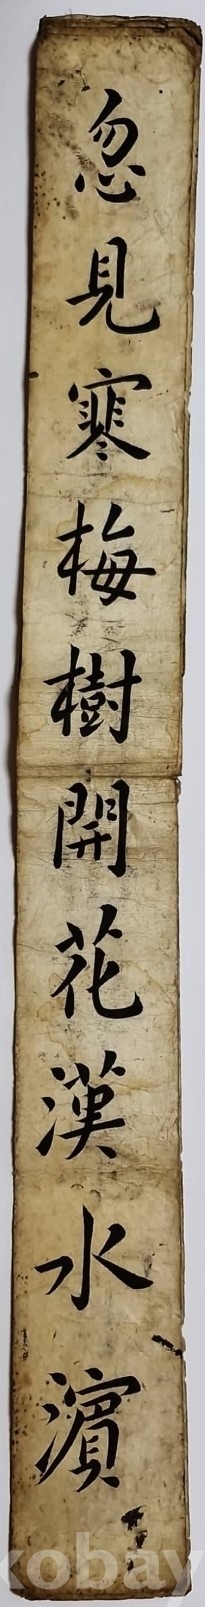 忽見寒梅樹開花漢水濱
kobay